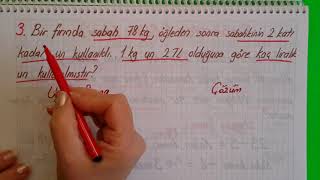 3. Bir fırında sabah 78 kg, öğleden sonra sabahkinin 2 katı
kadar un kullanıldı. 1 kg un 2 TL olduğuna göre kaç liralık
un kullanılmıştır?
Çözüm